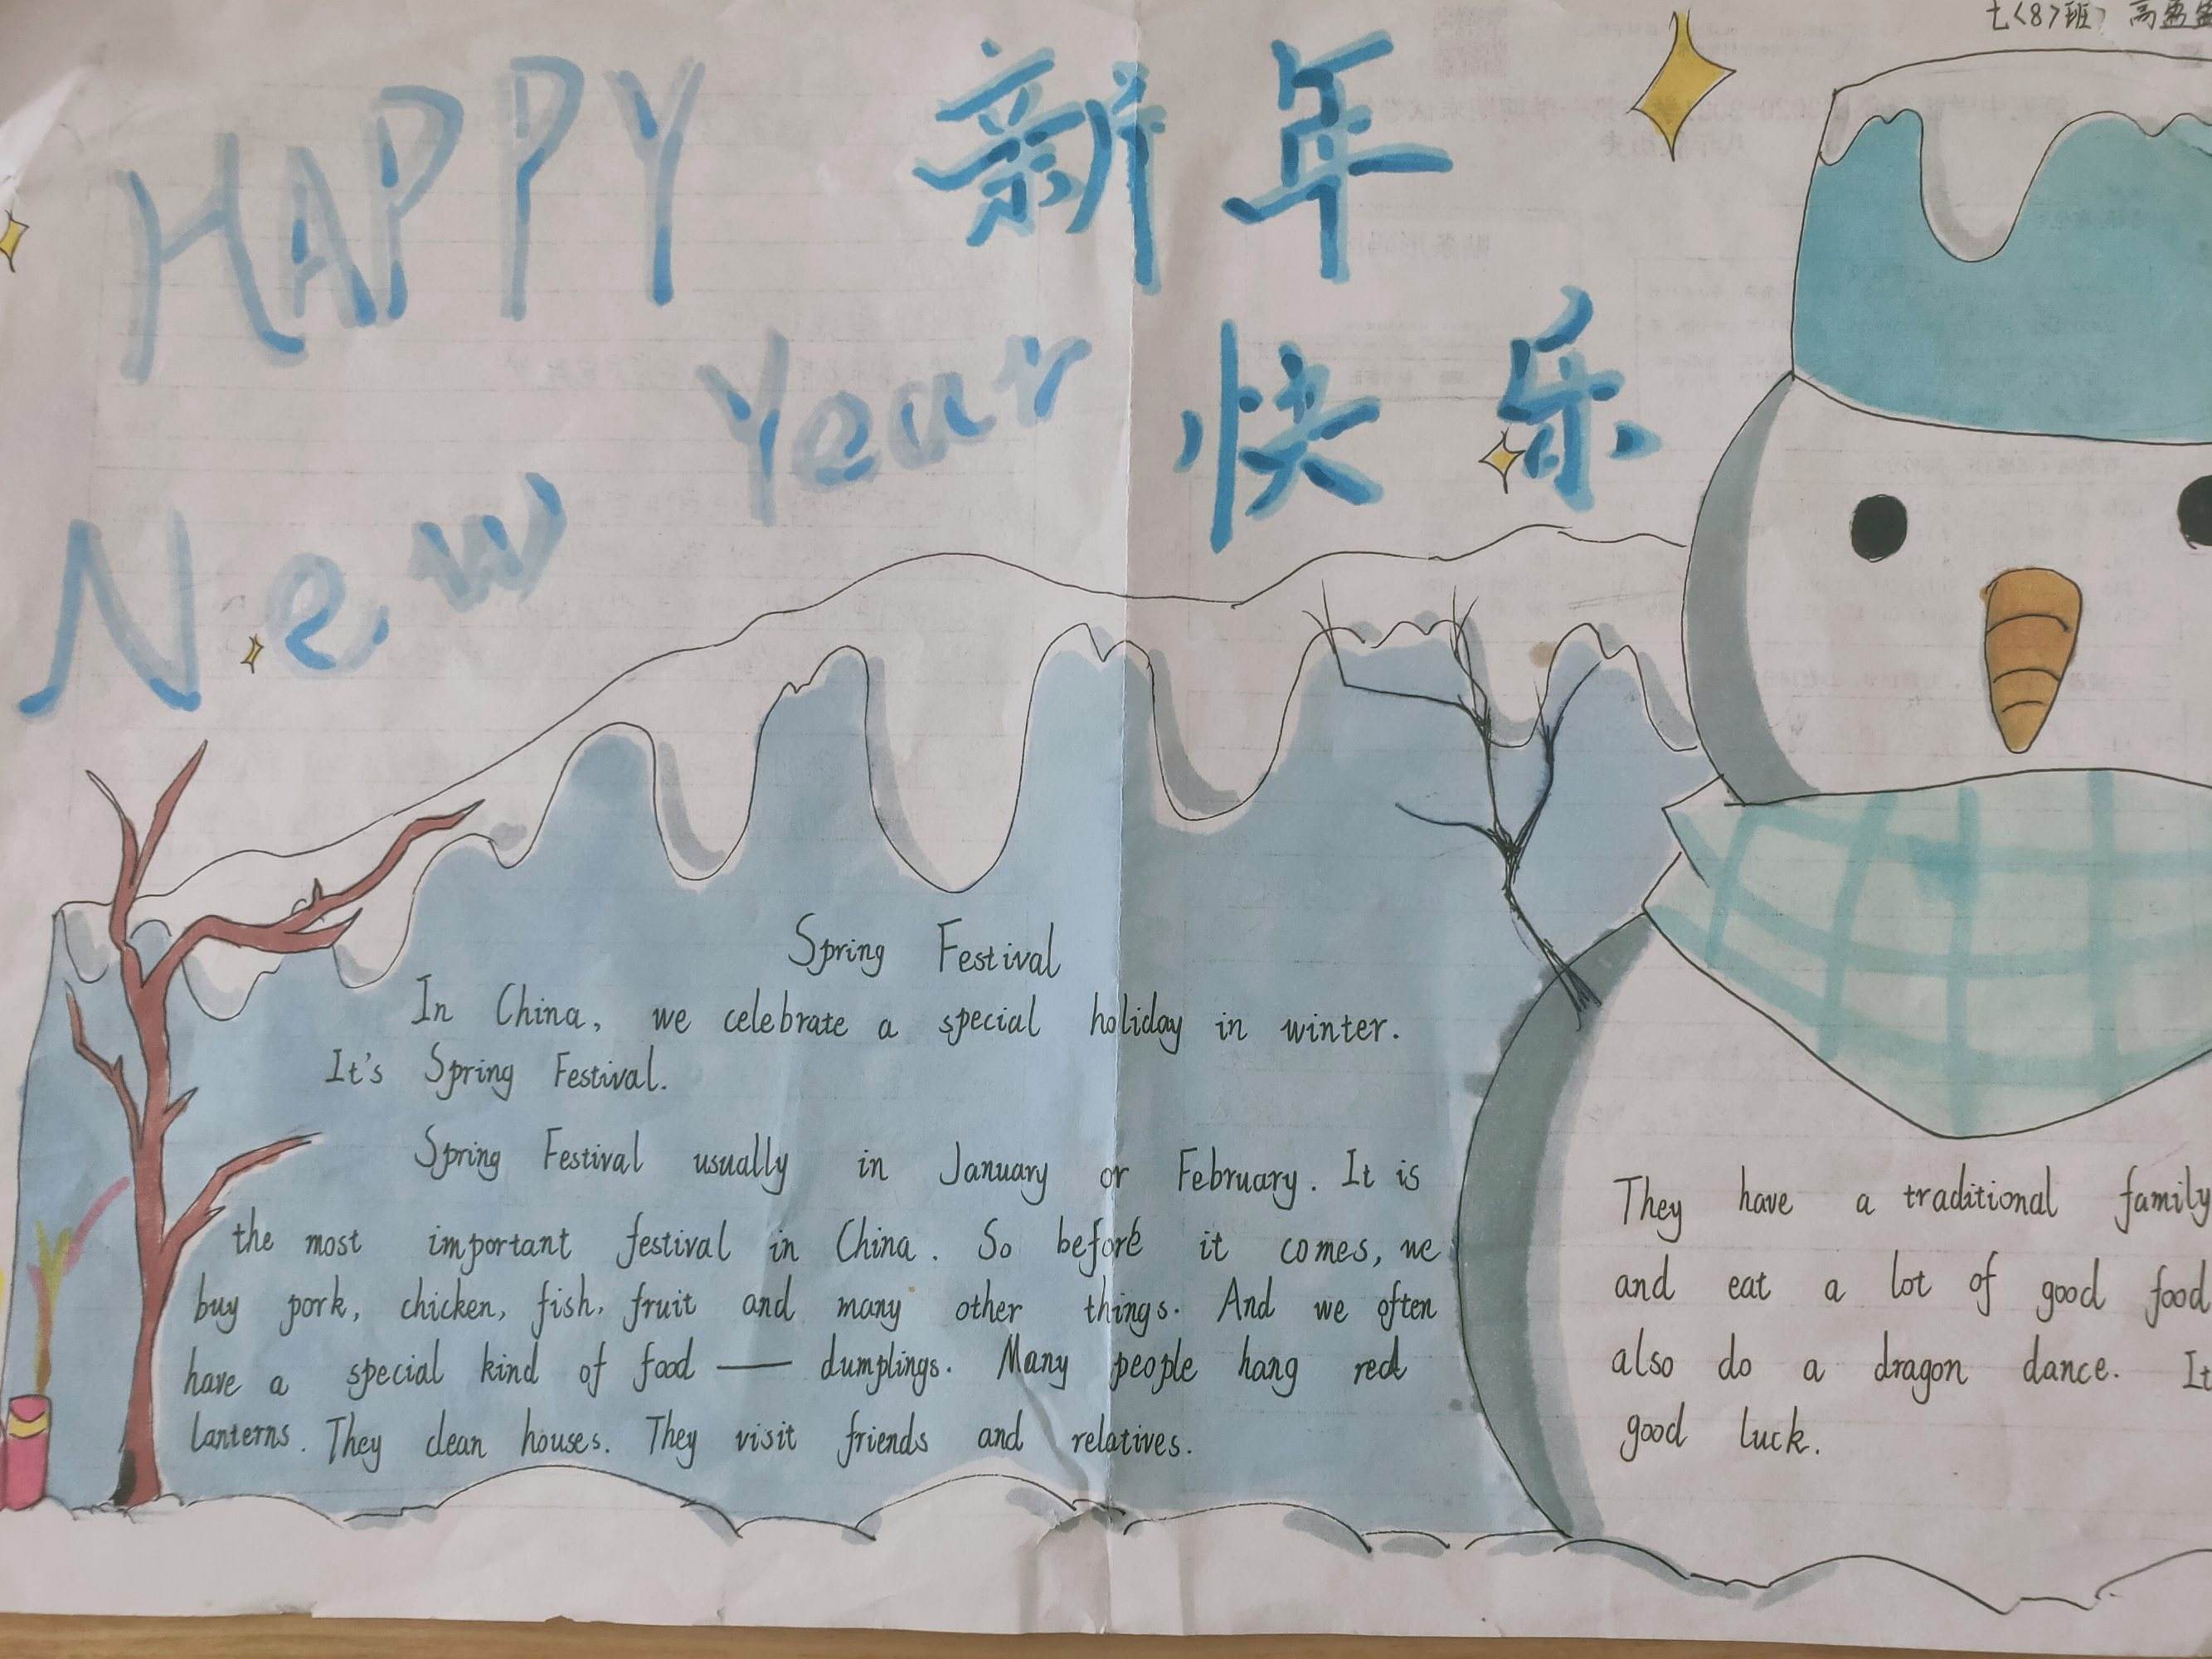 七<8>班 高盈盈
HAPPY
New Year
新年
快乐
Spring Festival
In China, we celebrate a special holiday in winter.
It's Spring Festival.
Spring Festival usually in January or February. It is
the most important festival in China. So before it comes, we
buy pork, chicken, fish, fruit and many other things. And we often
have a special kind of food —— dumplings. Many people hang red
lanterns. They clean houses. They visit friends and relatives.
They have a traditional family
and eat a lot of good food
also do a dragon dance. It
good luck.